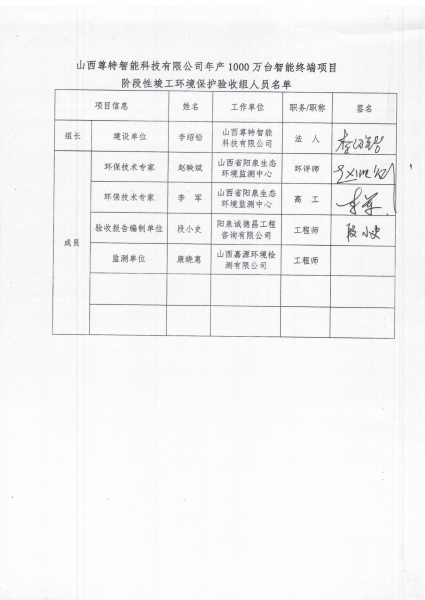 山西尊特智能科技有限公司年产 1000 万台智能终端项目
阶段性竣工环境保护验收组人员名单
项目信息 姓名 工作单位 职务/职称 签名
组长 建设单位 李绍铅 山西尊特智能
科技有限公司 法 人
成员
环保技术专家 赵映斌 山西省阳泉生态
环境监测中心 环评师
环保技术专家 李 军 山西省阳泉生态
环境监测中心 高 工 李军
验收报告编制单位 段小史 阳泉诚德昌工程
咨询有限公司 工程师 段小史
监测单位 康晓惠 山西嘉源环境检
测有限公司 工程师